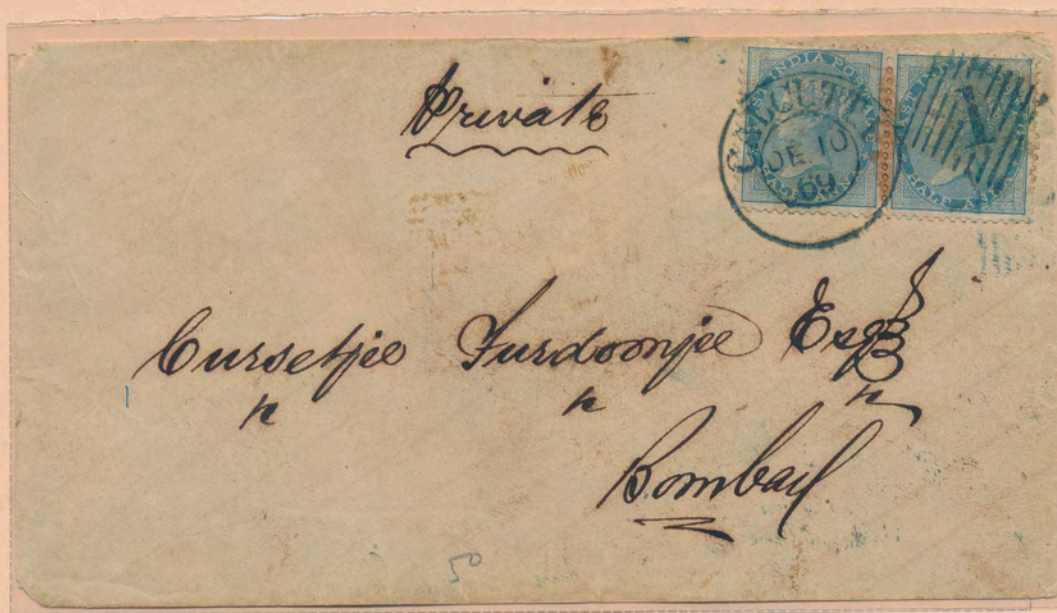 Private
EAST INDIA POSTAGE
HALF ANNA
CALCUTTA
DE 10
69
HALF ANNA
1
Cursetjee Furdoonjee Esqr
Bombay
50